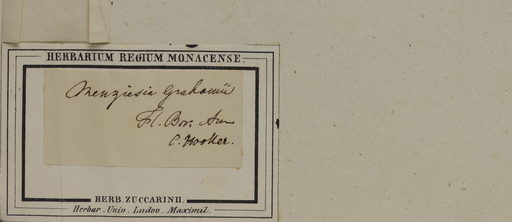 HERBARIUM REGIUM MONACENSE.
Menziesia Grahamii
Fl. Bor. Am
C. Hooker.
HERB. ZUCCARINII.
Herbar. Univ. Ludov. Maximil.